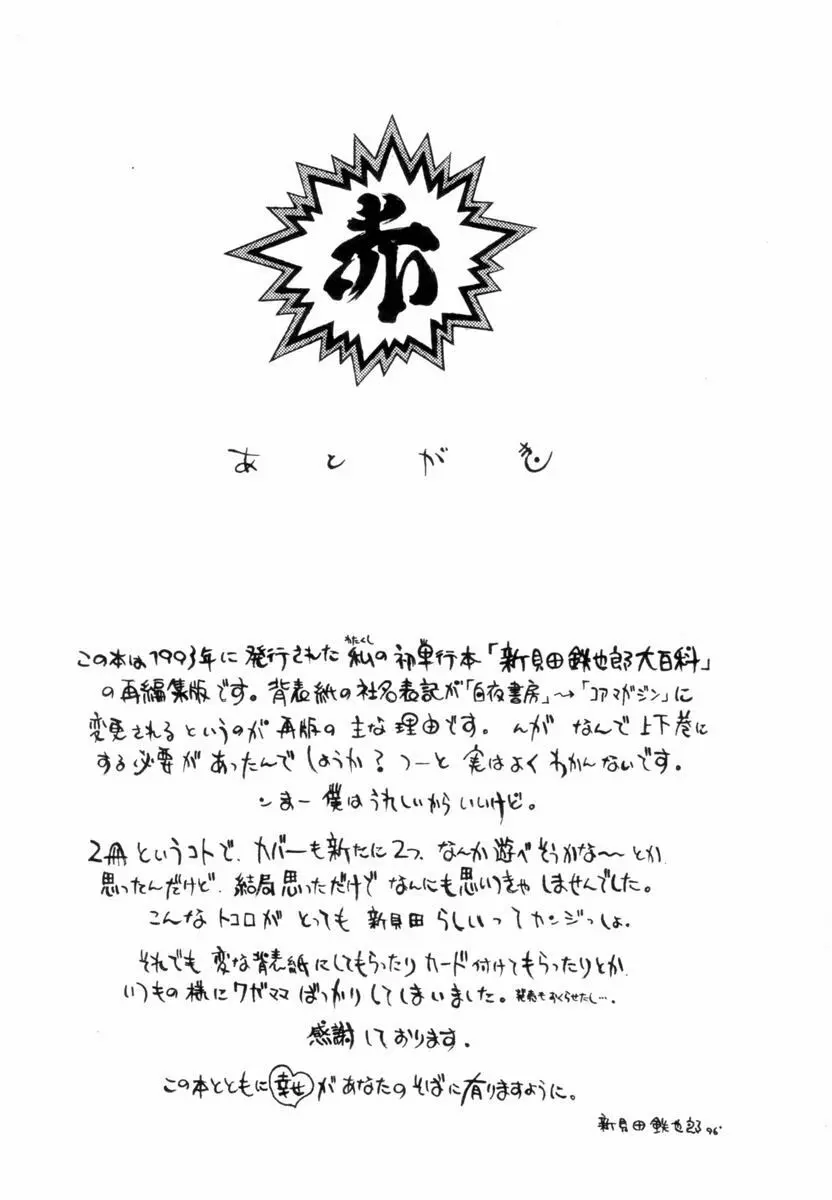 赤
あとがき
この本は1993年に発行された私の初単行本「新貝田鉄也郎大百科」
わたくし
の再編集版です。背表紙の社名表記が「白夜書房」→「コアマガジン」に
変更されるというのが再版の主な理由です。んが なんで上下巻に
する必要があったんでしょうか? つーと 実はよくわかんないです。
ンまー僕はうれしいからいいけど。
2冊というコトで、カバーも新たに2つ、なんか遊べそうかな〜とか
思ったんだけど、結局思っただけでなんにも思いつきゃしませんでした。
こんなトコロがとっても新貝田らしいってカンジっしょ。
それでも変な背表紙にしてもらったりカード付けてもらったりとか
いつもの様にワガママばっかりしてしまいました。発売もおくらせたし…。
感謝しております。
この本とともに幸せがあなたのそばに有りますように。
新貝田鉄也郎 96'